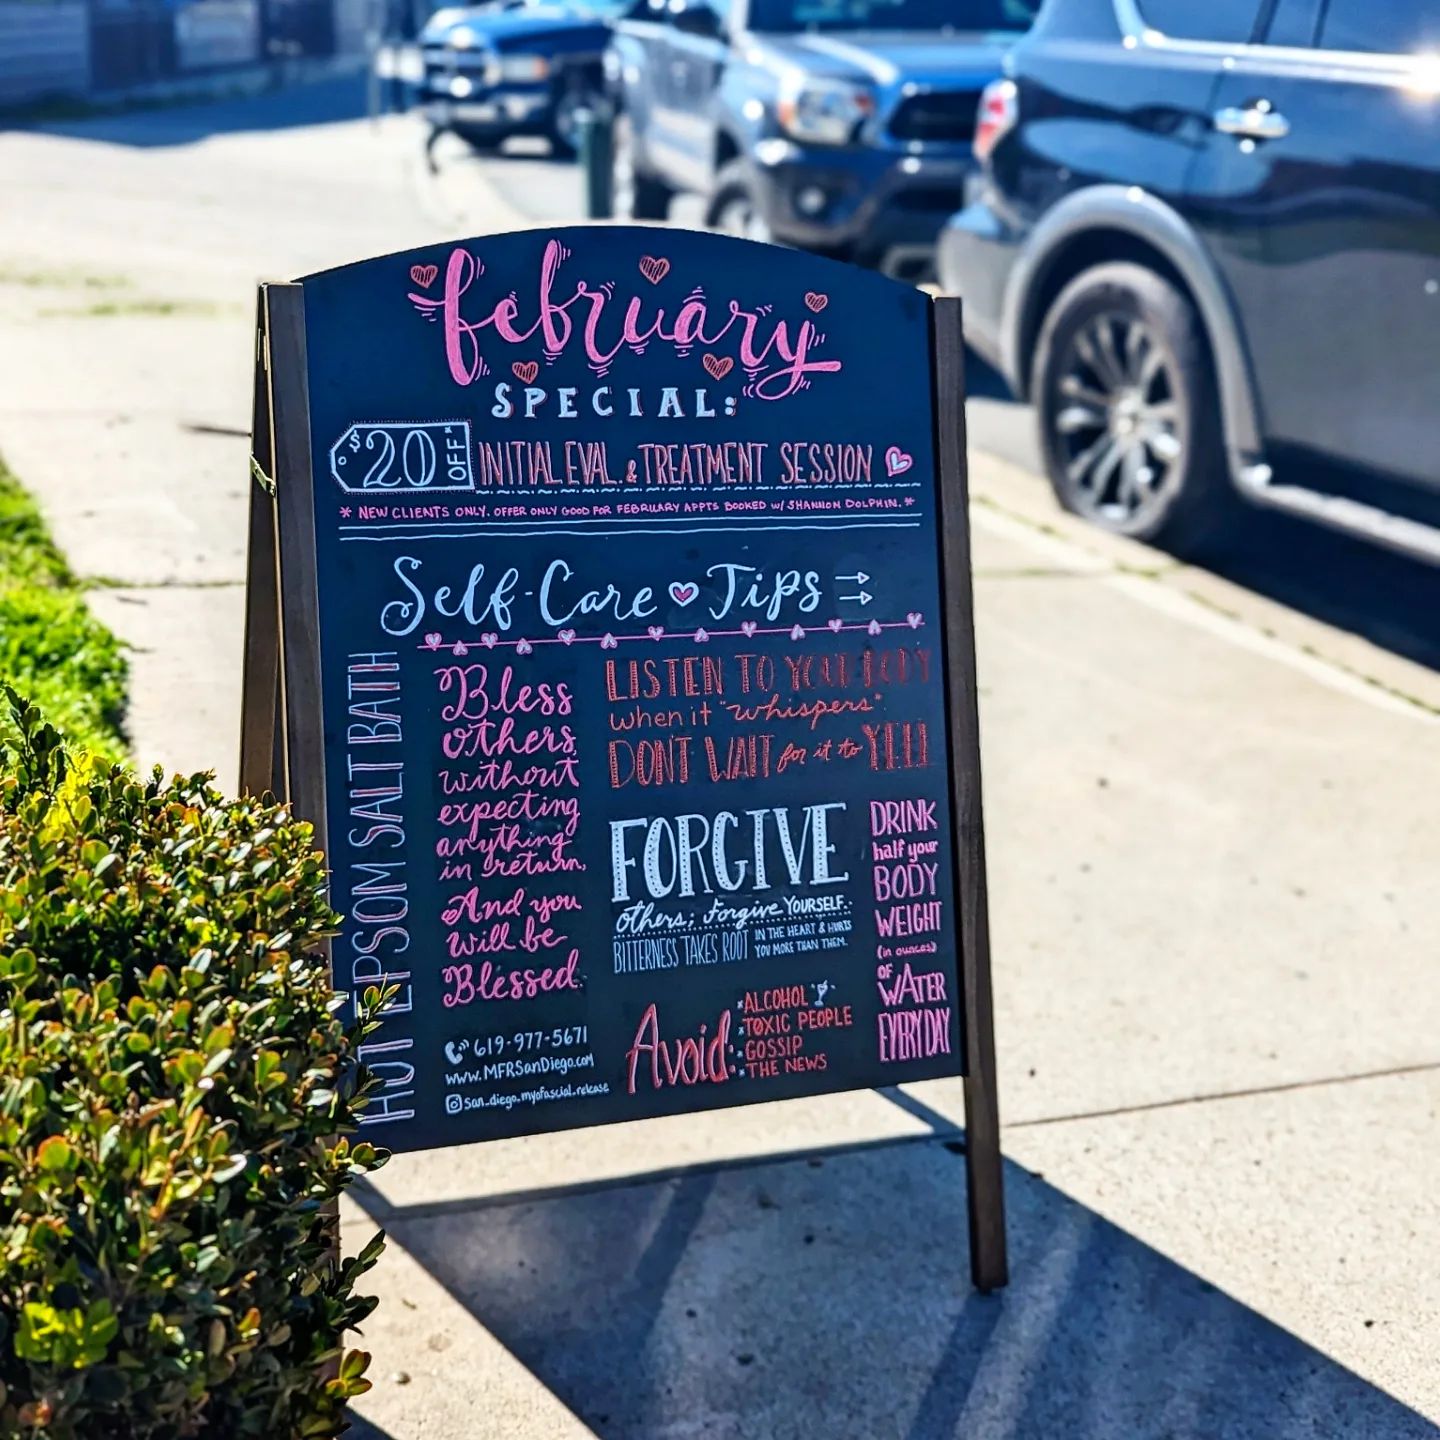 february
SPECIAL:
$20 OFF* INITIAL EVAL & TREATMENT SESSION
* NEW CLIENTS ONLY. OFFER ONLY GOOD FOR FEBRUARY APPTS BOOKED w/ SHANNON DOLPHIN. *
Self-Care Tips
HOT EPSOM SALT BATH
Bless
others
without
expecting
anything
in return,
And you
will be
Blessed.
LISTEN TO YOUR BODY
when it "whispers".
DON'T WAIT for it to YELL
FORGIVE
others; Forgive YOURSELF.
BITTERNESS TAKES ROOT IN THE HEART & HURTS
YOU MORE THAN THEM.
DRINK
half your
BODY
WEIGHT
(in ounces)
OF
WATER
EVERYDAY
Avoid:
*ALCOHOL
*TOXIC PEOPLE
*GOSSIP
*THE NEWS
619-977-5671
www.MFRSanDiego.com
San_diego_myofascial_release